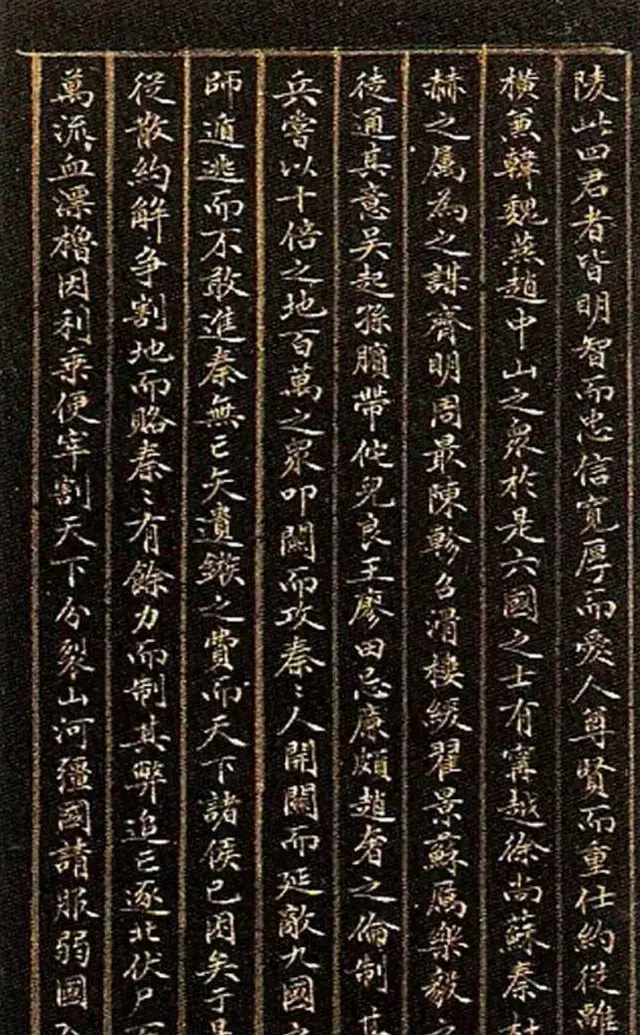 陵此四君者皆明智而忠信寬厚而愛人尊賢而重仕約從離
橫兼韓魏燕趙中山之衆於是六國之士有甯越徐尚蘇秦杜
赫之属為之謀齊明周最陳軫召滑樓緩翟景蘇厲樂毅之
徒通其意吴起孫臏帶佗兒良王廖田忌廉頗趙奢之倫制其
兵嘗以十倍之地百萬之衆叩關而攻秦〻人開關而延敵九國之
師遁逃而不敢進秦無亡矢遺鏃之費而天下諸侯已困矣于是
從散約解争割地而賂秦〻有餘力而制其弊追亡逐北伏尸百
萬流血漂櫓因利乘便宰割天下分裂山河彊國請服弱國